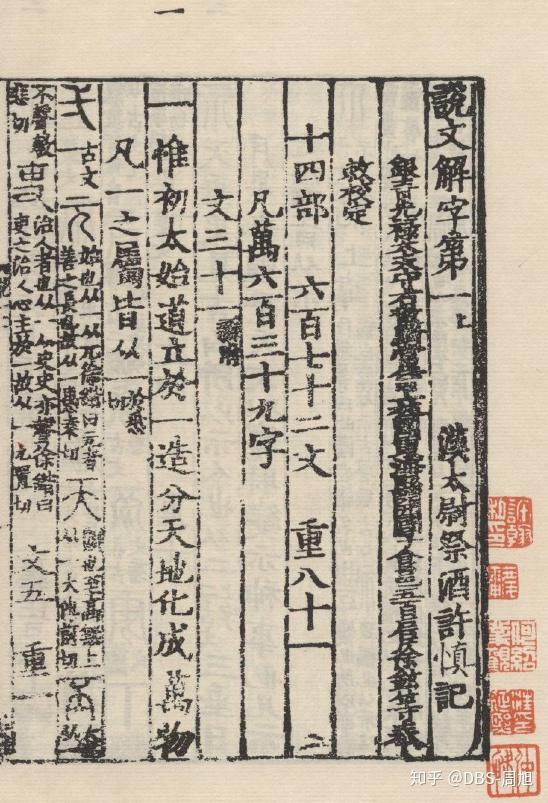 一
說文解字第一上　漢太尉祭酒許慎記
銀青光祿大夫守右散騎常侍上柱國東海縣開國子食邑五百户徐鉉等奉
敕校定
十四部　六百七十二文　重八十一
凡萬六百三十九字
文三十一新附
一惟初太始道立於一造分天地化成萬物
凡一之屬皆从一於悉切
弌古文一
元始也从一从兀徐鍇曰元者善之長也故从一愚袁切
天顚也至高無上从一大他前切
丕大也从一
不聲敷悲切
吏治人者也从一从史史亦聲徐鍇曰吏之治人心主於一故从一力置切
文五　重一
知乎 @DBS-周旭